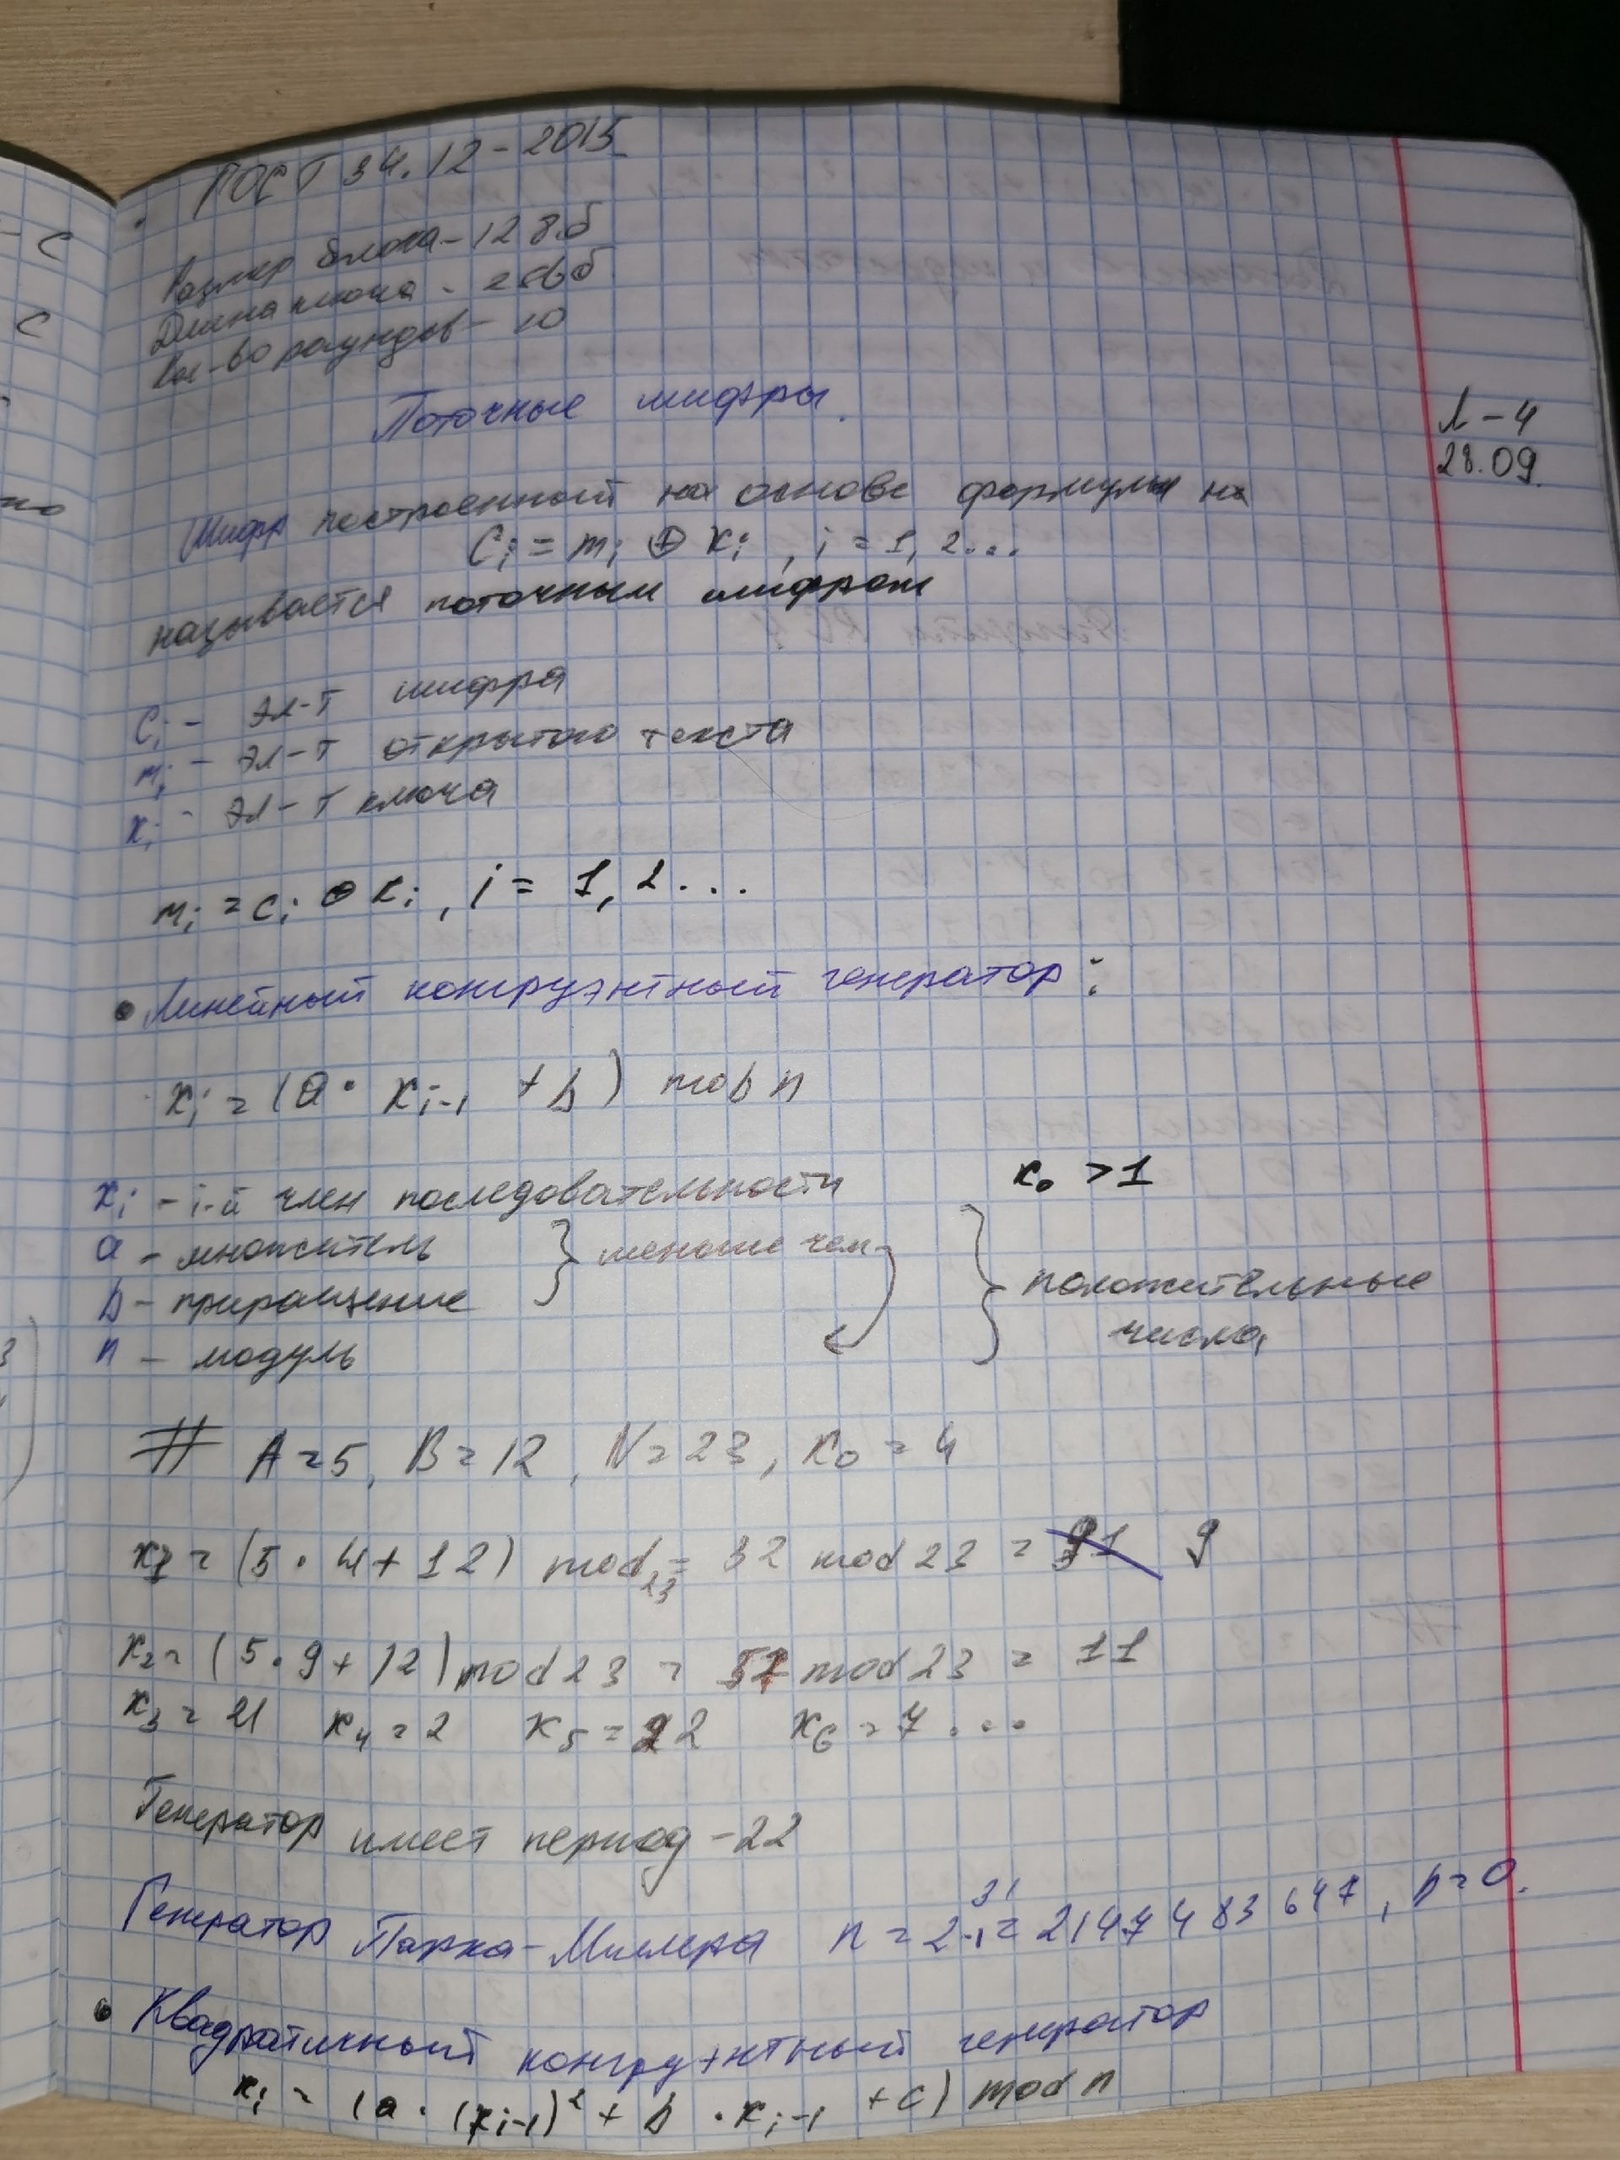 ГОСТ 34.12-2015
Размер блока - 128 б
Длина ключа - 256 б
Кол-во раундов - 10
Поточные шифры.
Л-4
28.09.
Шифр построенный на основе формулы на
Ci = mi ⊕ Ki , i = 1, 2...
называется поточным шифром
Ci - эл-т шифра
mi - эл-т открытого текста
Ki - эл-т ключа
mi = ci ⊕ Ki , i = 1, 2...
• Линейный конгруэнтный генератор:
Ki = (a · Ki-1 + b) mod n
Ki - i-й член последовательности
K0 > 1
a - множитель } меньше чем
b - приращение
} положительные числа
n - модуль
# A=5, B=12, N=23, K0=4
K1 = (5 · 4 + 12) mod 23 = 32 mod 23 = 9
K2 = (5 · 9 + 12) mod 23 = 57 mod 23 = 11
K3 = 21 K4 = 2 K5 = 22 K6 = 7 ...
Генератор имеет период - 22
Генератор Парка-Миллера n = 2^31-1 = 2147483647, b=0.
• Квадратичный конгруэнтный генератор
Ki = (a · (Ki-1)² + b · Ki-1 + c) mod n